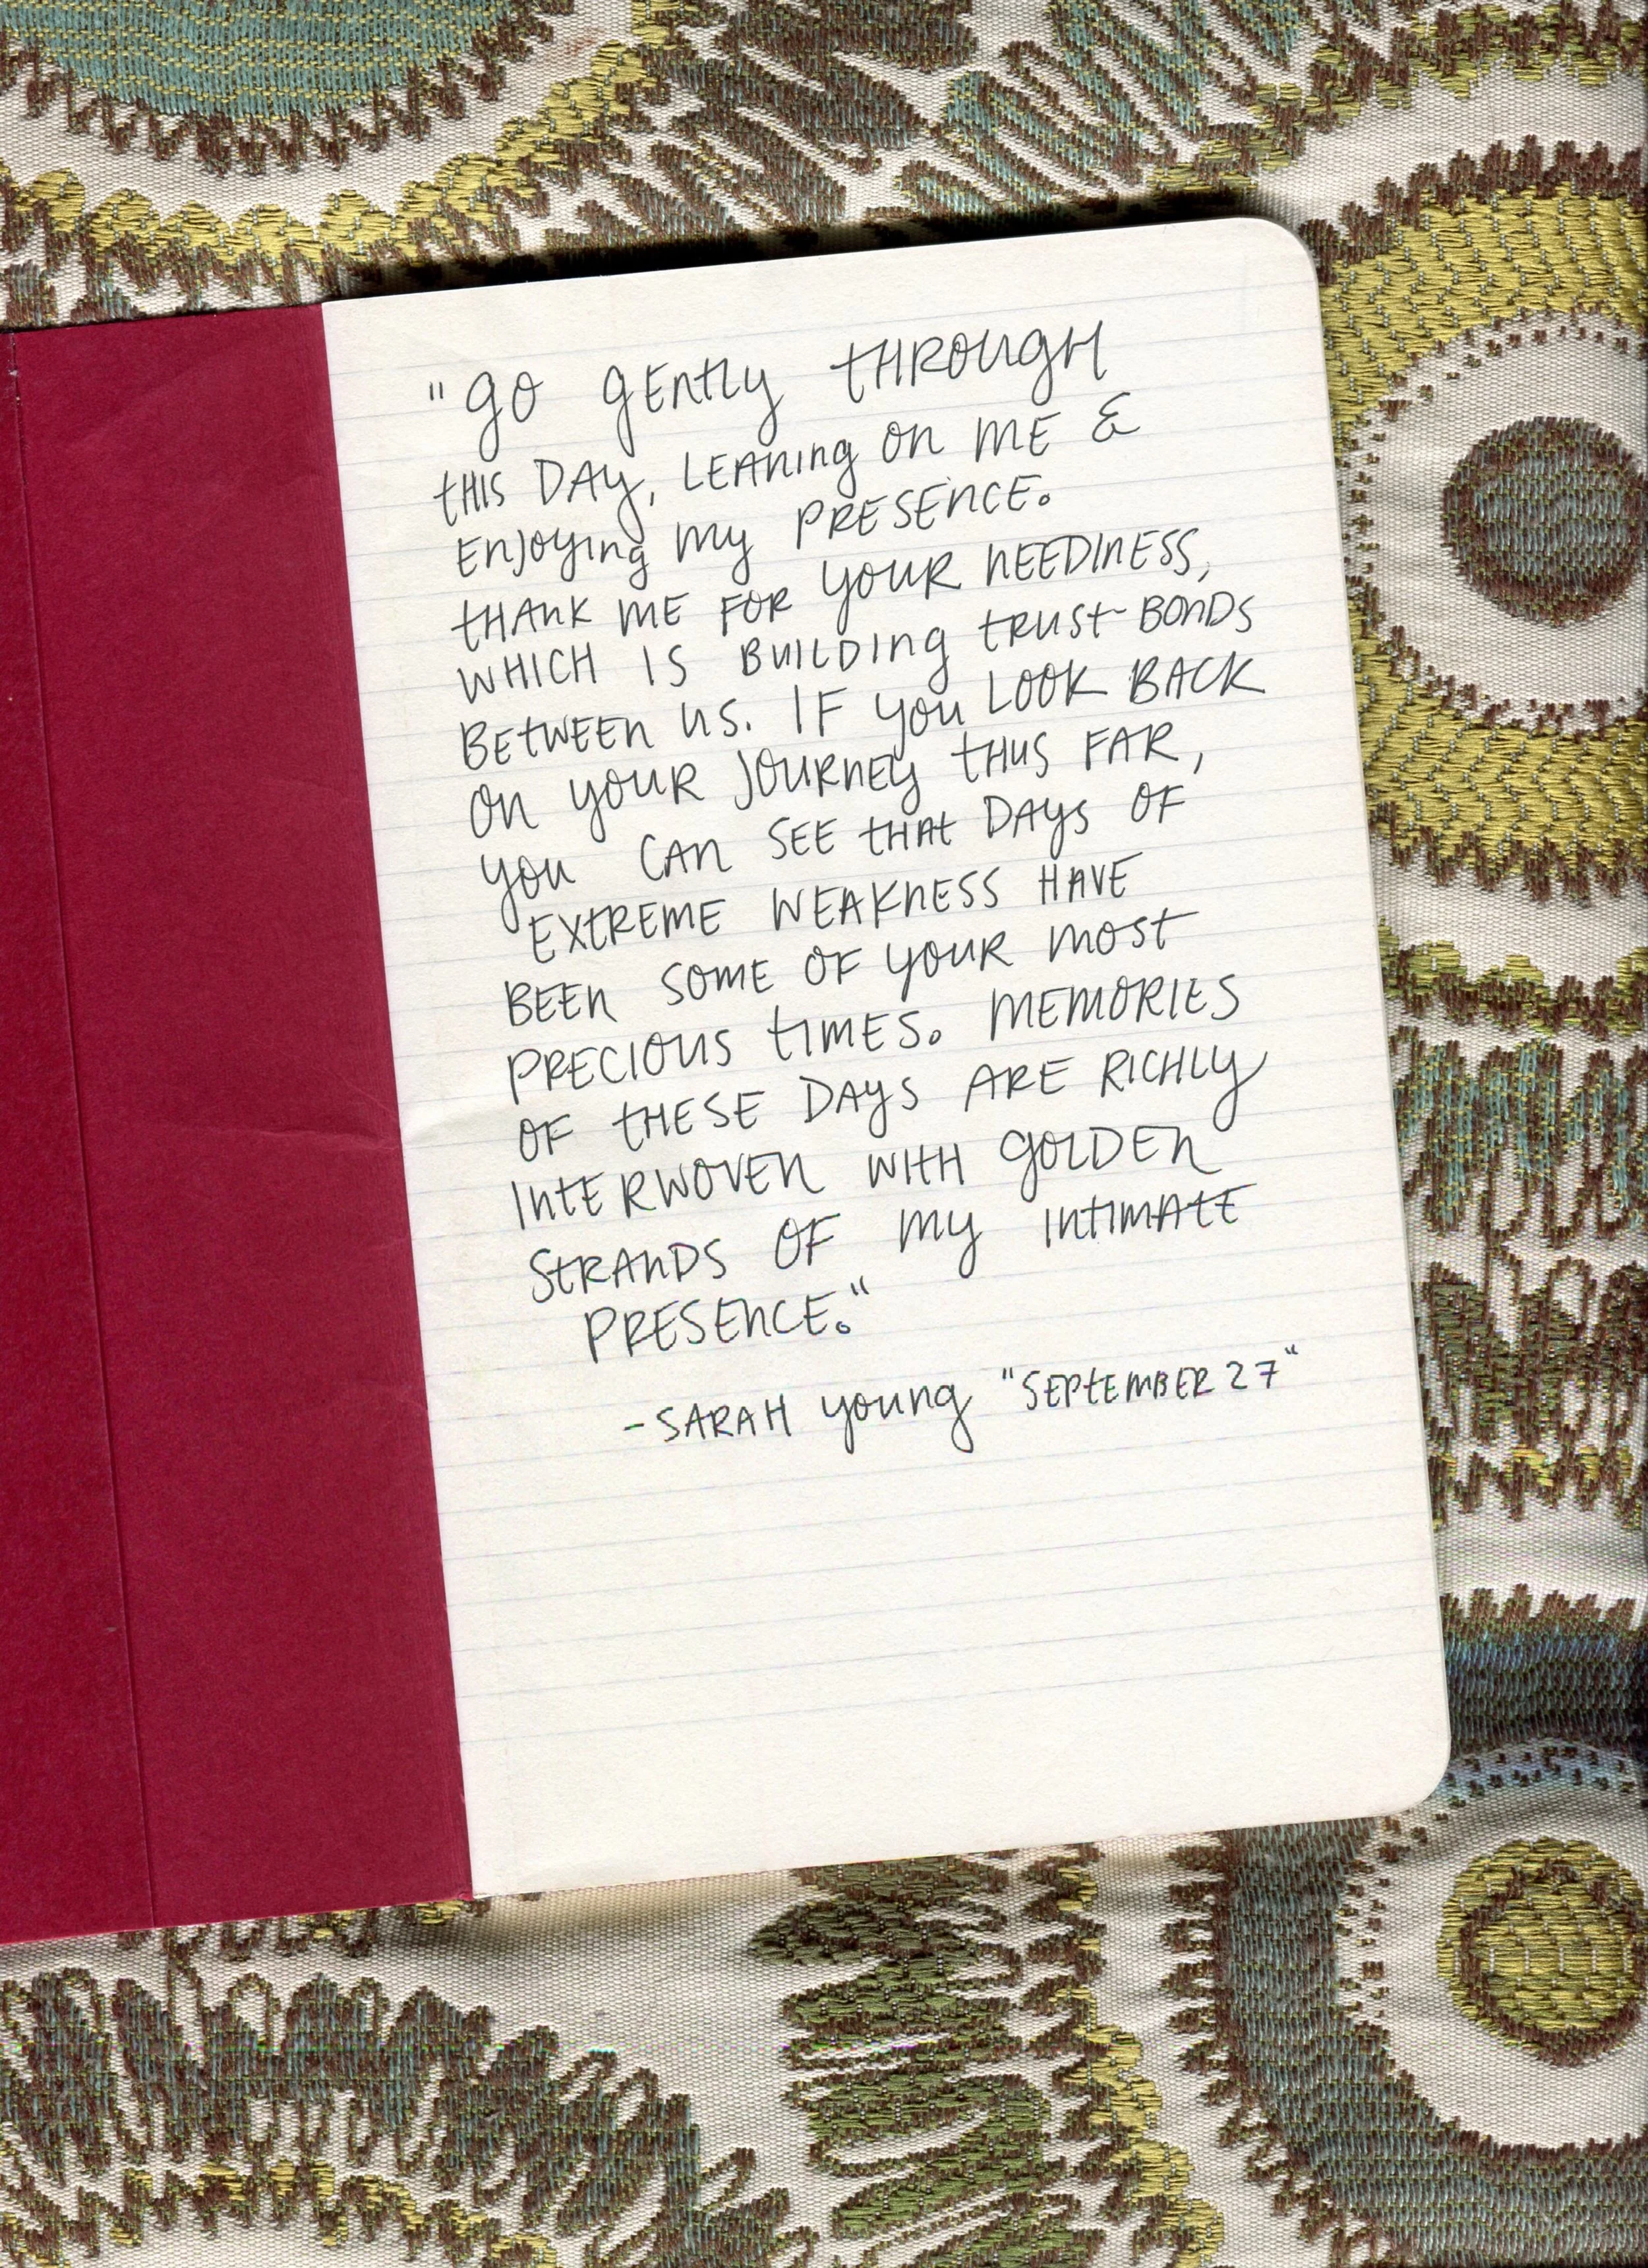 "Go gently through
this day, leaning on me &
enjoying my presence.
Thank me for your neediness,
which is building trust-bonds
between us. If you look back
on your journey thus far,
you can see that days of
extreme weakness have
been some of your most
precious times. Memories
of these days are richly
interwoven with golden
strands of my intimate
presence."
-Sarah Young "September 27"